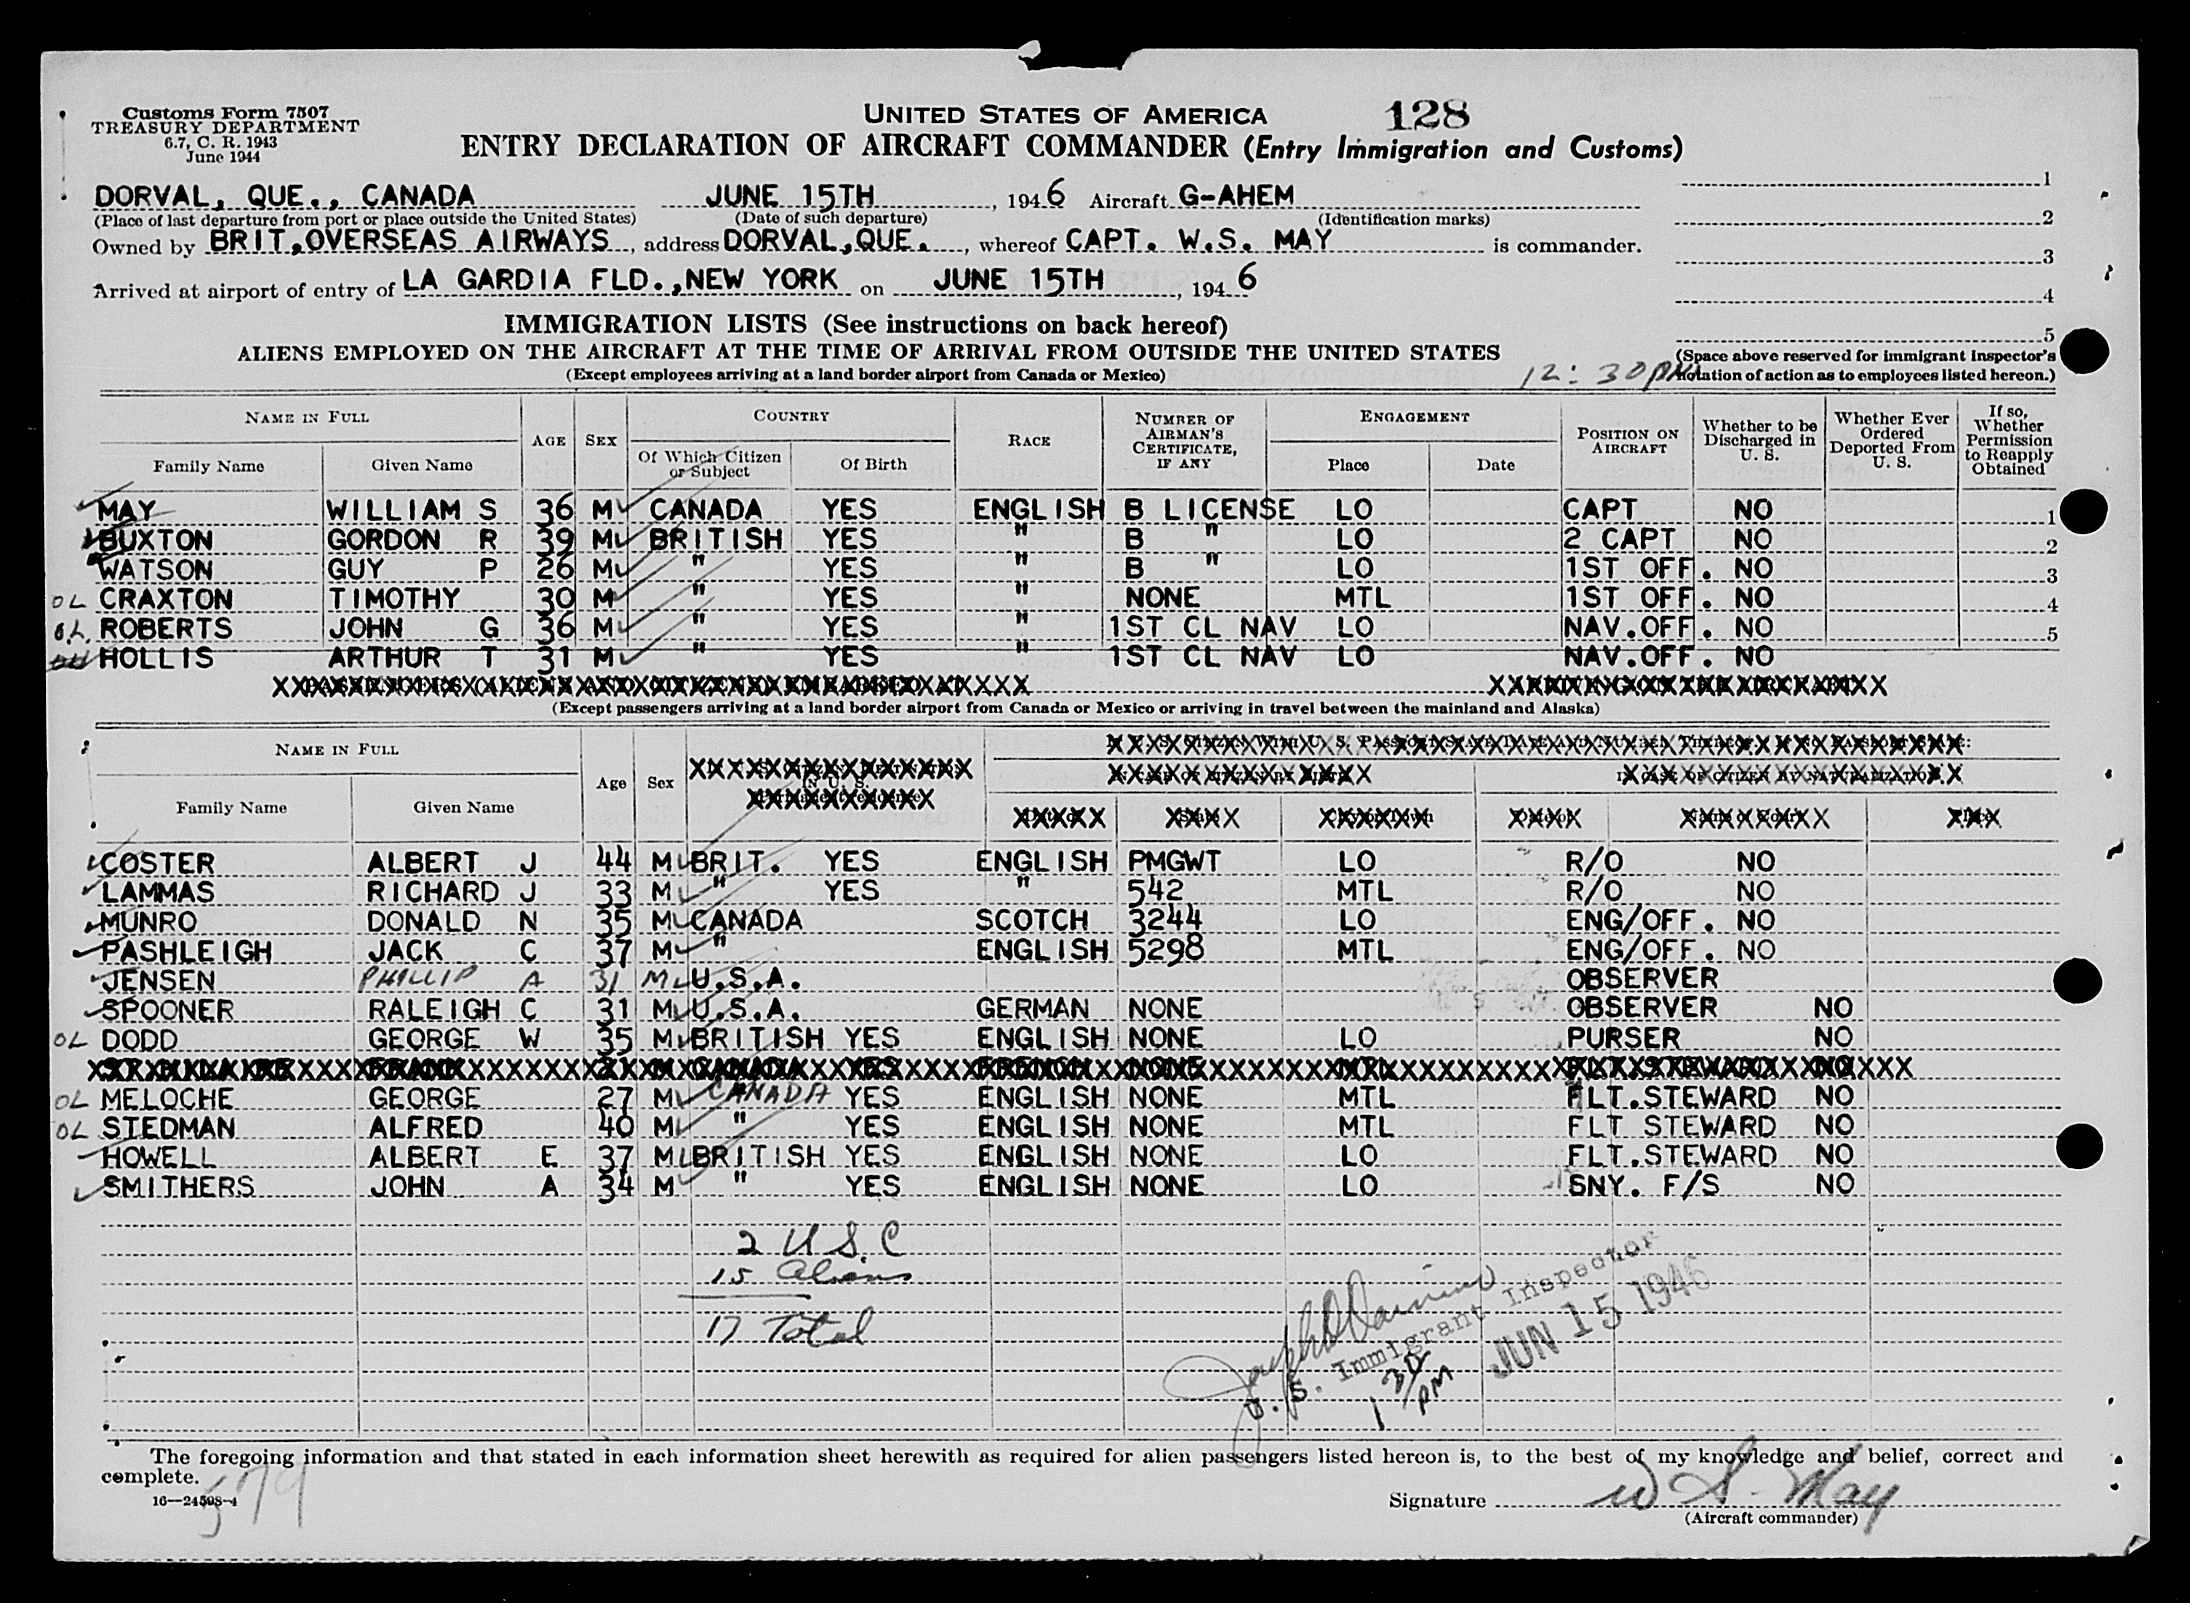 Customs Form 7507
TREASURY DEPARTMENT
6.7, C. R. 1943
June 1944
UNITED STATES OF AMERICA 128
ENTRY DECLARATION OF AIRCRAFT COMMANDER (Entry Immigration and Customs)
DORVAL, QUE., CANADA JUNE 15TH, 1946 Aircraft G-AHEM
(Place of last departure from port or place outside the United States) (Date of such departure) (Identification marks)
Owned by BRIT.OVERSEAS AIRWAYS, address DORVAL,QUE., whereof CAPT. W.S. MAY is commander.
Arrived at airport of entry of LA GARDIA FLD.,NEW YORK on JUNE 15TH, 1946
1
2
3
4
5
IMMIGRATION LISTS (See instructions on back hereof)
ALIENS EMPLOYED ON THE AIRCRAFT AT THE TIME OF ARRIVAL FROM OUTSIDE THE UNITED STATES
(Except employees arriving at a land border airport from Canada or Mexico)
12:30 PM
(Space above reserved for immigrant inspector's
notation of action as to employees listed hereon.)
NAME IN FULL AGE SEX COUNTRY RACE NUMBER OF AIRMAN'S CERTIFICATE, IF ANY ENGAGEMENT POSITION ON AIRCRAFT Whether to be Discharged in U. S. Whether Ever Ordered Deported From U. S. If so, Whether Permission to Reapply Obtained
Family Name Given Name Of Which Citizen or Subject Of Birth Place Date
MAY WILLIAM S 36 M CANADA YES ENGLISH B LICENSE LO CAPT NO 1
BUXTON GORDON R 39 M BRITISH YES " B " LO 2 CAPT NO 2
WATSON GUY P 26 M " YES " B " LO 1ST OFF. NO 3
OL CRAXTON TIMOTHY 30 M " YES " NONE MTL 1ST OFF. NO 4
O.L. ROBERTS JOHN G 36 M " YES " 1ST CL NAV LO NAV.OFF. NO 5
HOLLIS ARTHUR T 31 M " YES " 1ST CL NAV LO NAV.OFF. NO
(Except passengers arriving at a land border airport from Canada or Mexico or arriving in travel between the mainland and Alaska)
NAME IN FULL Age Sex
Family Name Given Name
COSTER ALBERT J 44 M BRIT. YES ENGLISH PMGWT LO R/O NO
LAMMAS RICHARD J 33 M " YES " 542 MTL R/O NO
MUNRO DONALD N 35 M CANADA SCOTCH 3244 LO ENG/OFF. NO
PASHLEIGH JACK C 37 M " ENGLISH 5298 MTL ENG/OFF. NO
JENSEN PHILLIP A 31 M U.S.A. OBSERVER
SPOONER RALEIGH C 31 M U.S.A. GERMAN NONE OBSERVER NO
OL DODD GEORGE W 35 M BRITISH YES ENGLISH NONE LO PURSER NO
OL MELOCHE GEORGE 27 M CANADA YES ENGLISH NONE MTL FLT.STEWARD NO
OL STEDMAN ALFRED 40 M " YES ENGLISH NONE MTL FLT STEWARD NO
HOWELL ALBERT E 37 M BRITISH YES ENGLISH NONE LO FLT.STEWARD NO
SMITHERS JOHN A 34 M " YES ENGLISH NONE LO SNY. F/S NO
2 U S. C
15 Aliens
17 Total
U. S. Immigrant Inspector
JUN 15 1946
1 30 PM
The foregoing information and that stated in each information sheet herewith as required for alien passengers listed hereon is, to the best of my knowledge and belief, correct and
complete.
16—24598-1
579
Signature W S. May
(Aircraft commander)